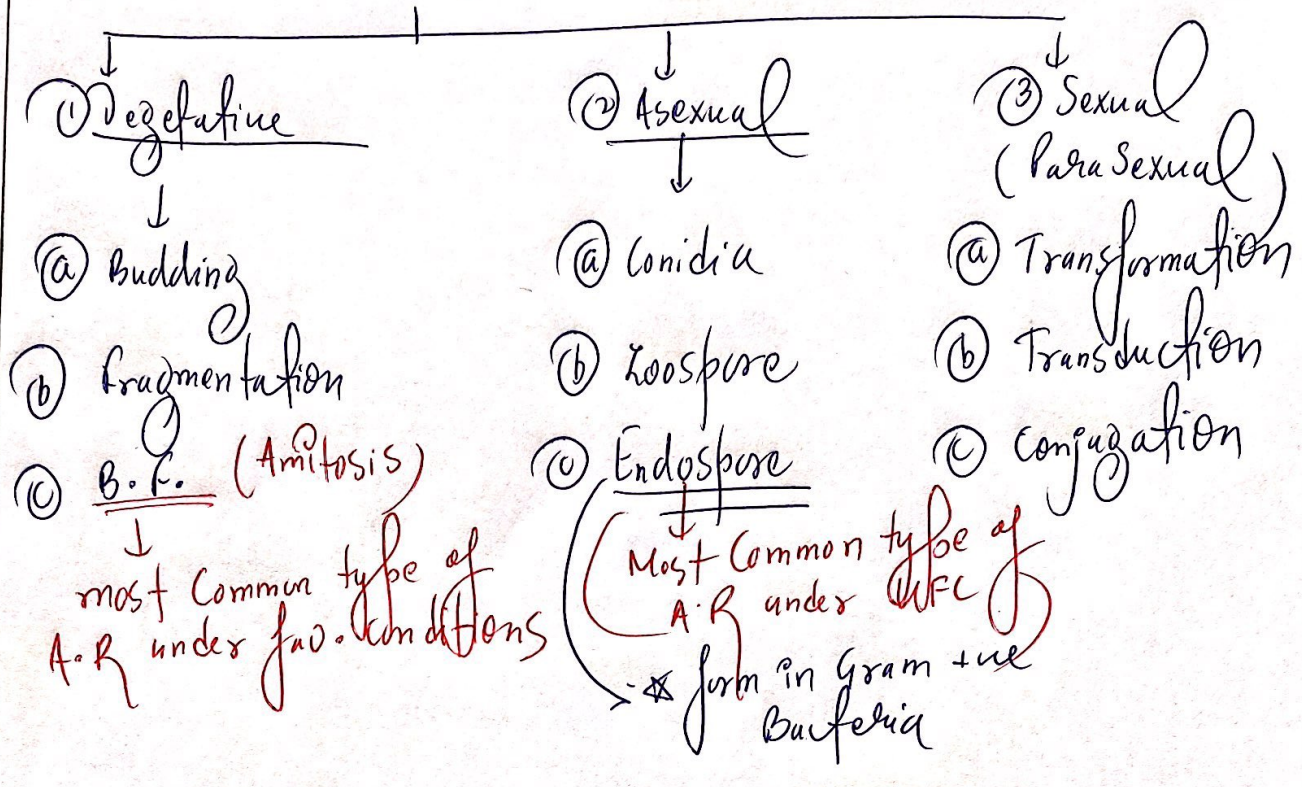 ① Vegetative
ⓐ Budding
ⓑ Fragmentation
ⓒ B.F. (Amitosis)
most Common type of
A.R under fav. conditions
② Asexual
ⓐ Conidia
ⓑ Zoospore
ⓒ Endospore
Most Common type of
A.R under UFC
* form in Gram +ve
Bacteria
③ Sexual
(Para Sexual)
ⓐ Transformation
ⓑ Transduction
ⓒ Conjugation